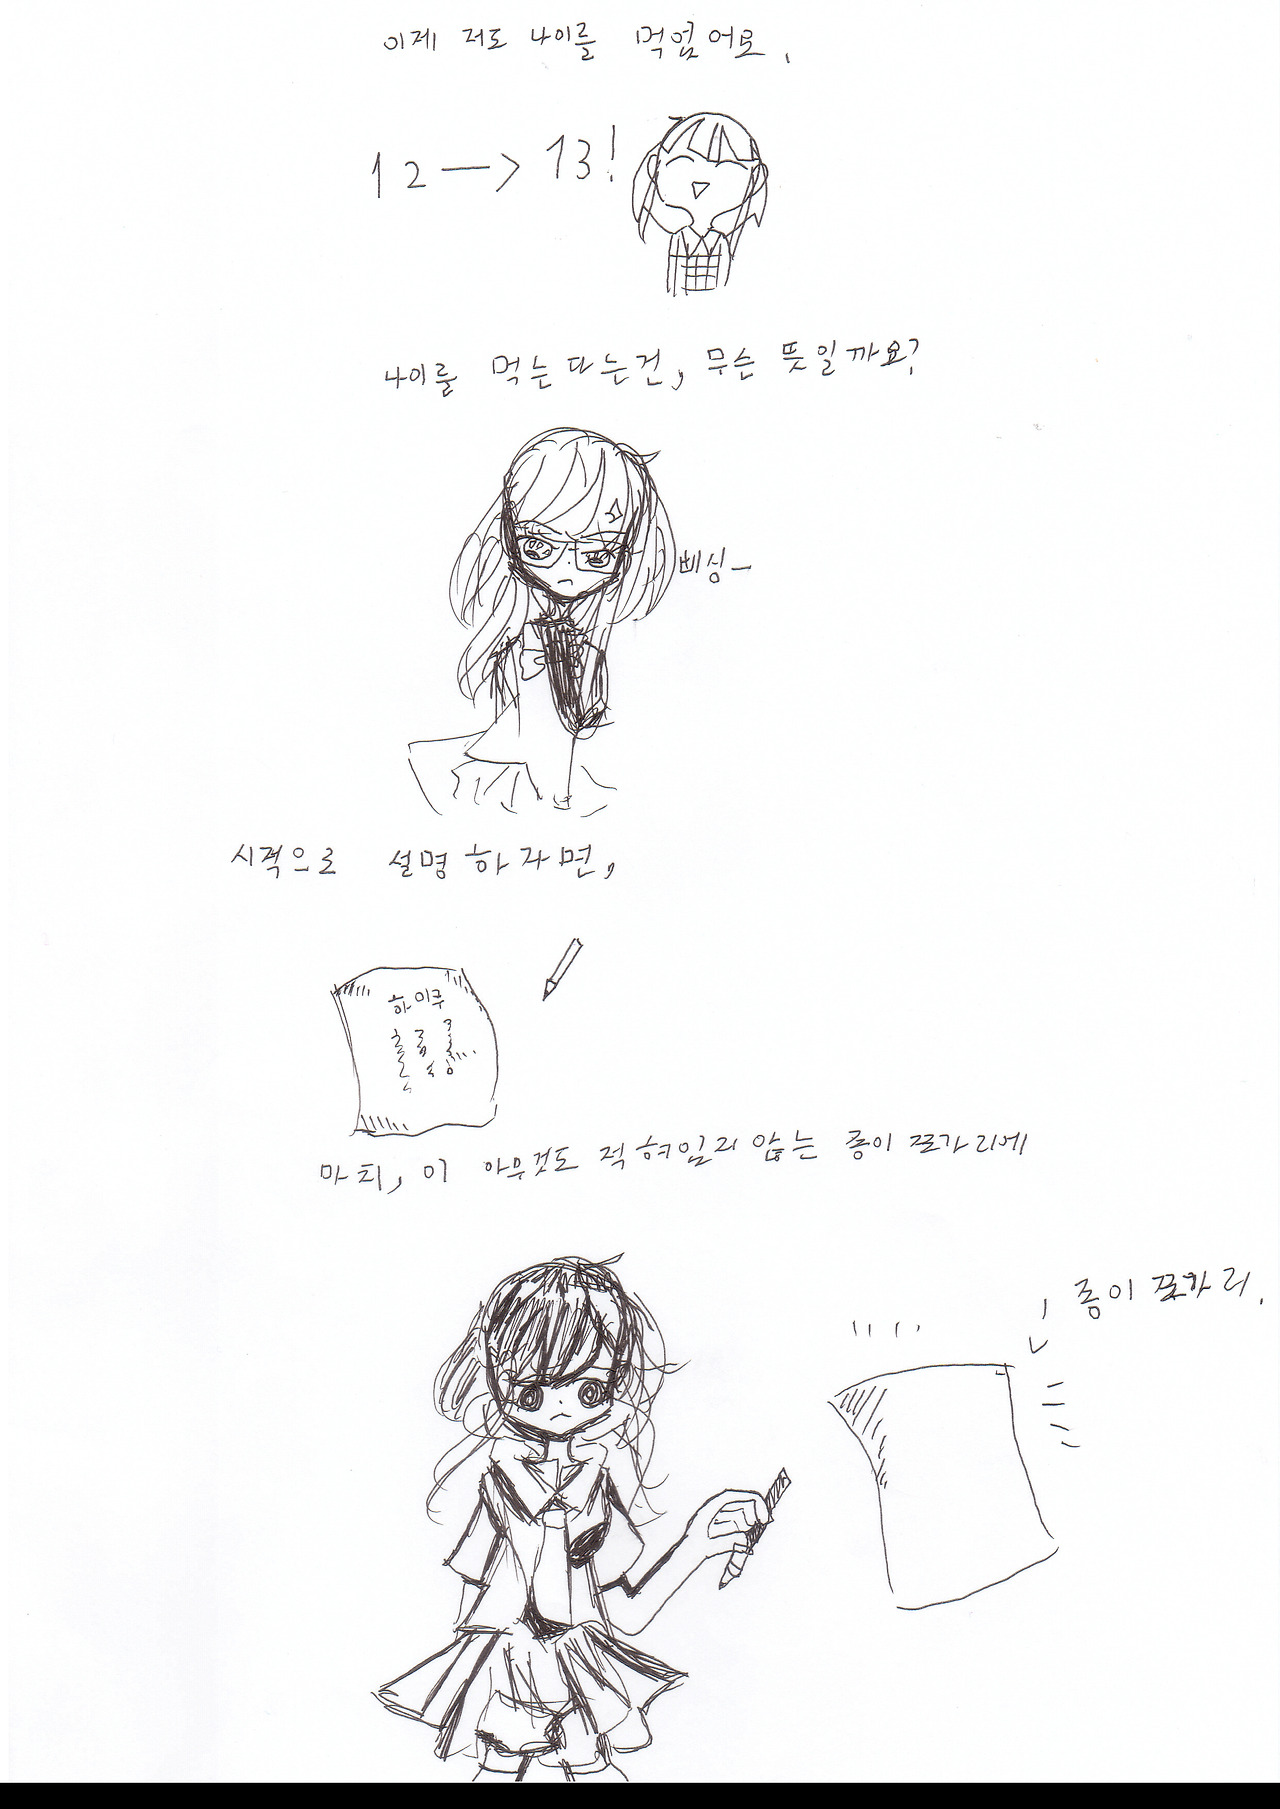 이제 저도 나이를 먹었어요.
12 → 13!
나이를 먹는다는건, 무슨 뜻일까요?
삐싱-
시적으로 설명하자면,
하이쿠
마치, 이 아무것도 적혀있지 않는 종이 쪼가리에
종이 쪼가리.